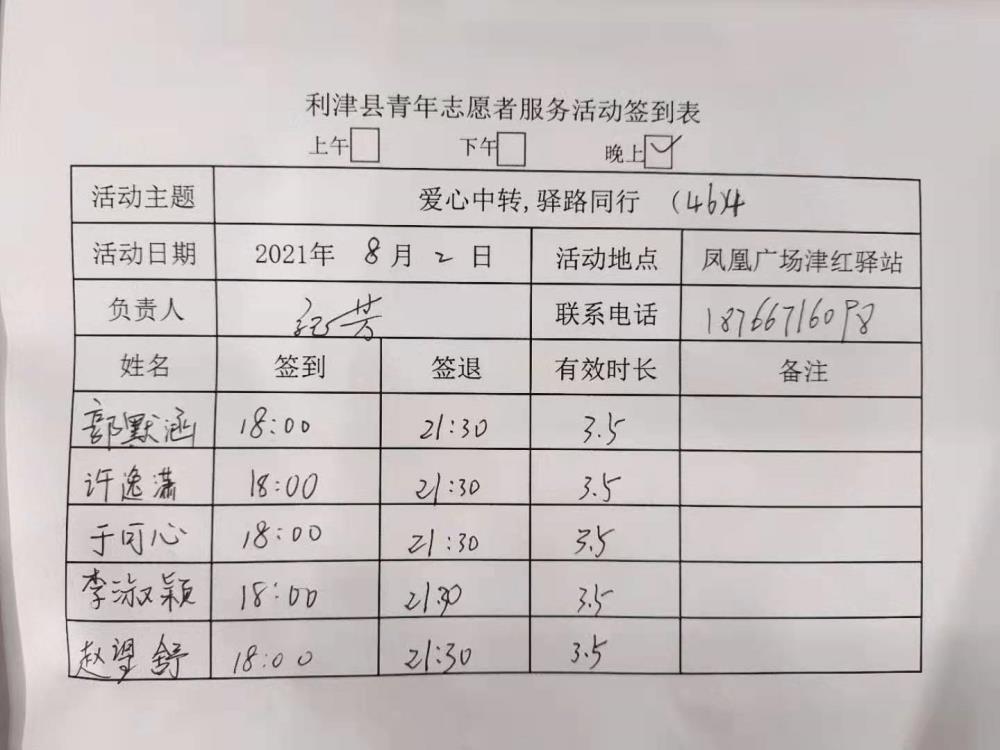 利津县青年志愿者服务活动签到表
上午 下午 晚上 ✓
活动主题 爱心中转,驿路同行 (46)
活动日期 2021年 8月 2日 活动地点 凤凰广场津红驿站
负责人 芳 联系电话 18766716098
姓名 签到 签退 有效时长 备注
郭默涵 18:00 21:30 3.5
许逸潇 18:00 21:30 3.5
于可心 18:00 21:30 3.5
李淑颖 18:00 21:30 3.5
赵望舒 18:00 21:30 3.5